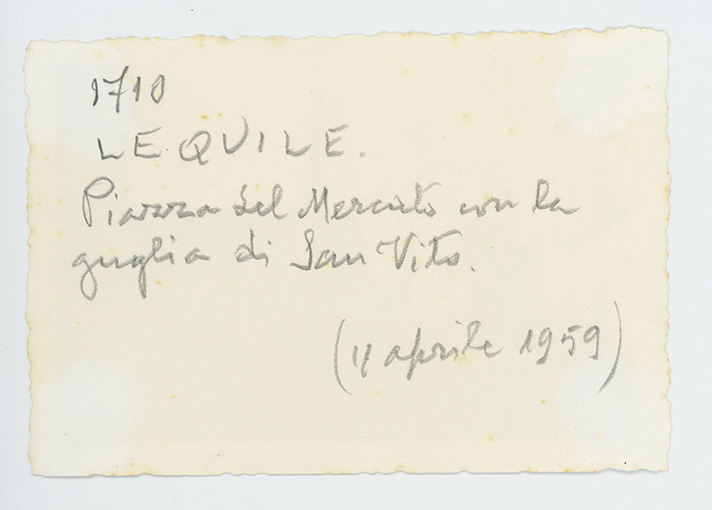 1710
LEQUILE.
Piazza del Mercato con la
guglia di San Vito.
(11 aprile 1959)